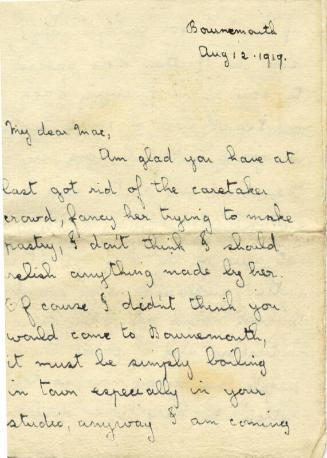 Bournemouth
Aug 12. 1919.
My dear Mac,
Am glad you have at
last got rid of the caretaker
crowd, fancy her trying to make
pastry, I don't think I should
relish anything made by her.
Of cause I didn't think you
would come to Bournemouth,
it must be simply boiling
in town especially in your
studio, anyway I am coming